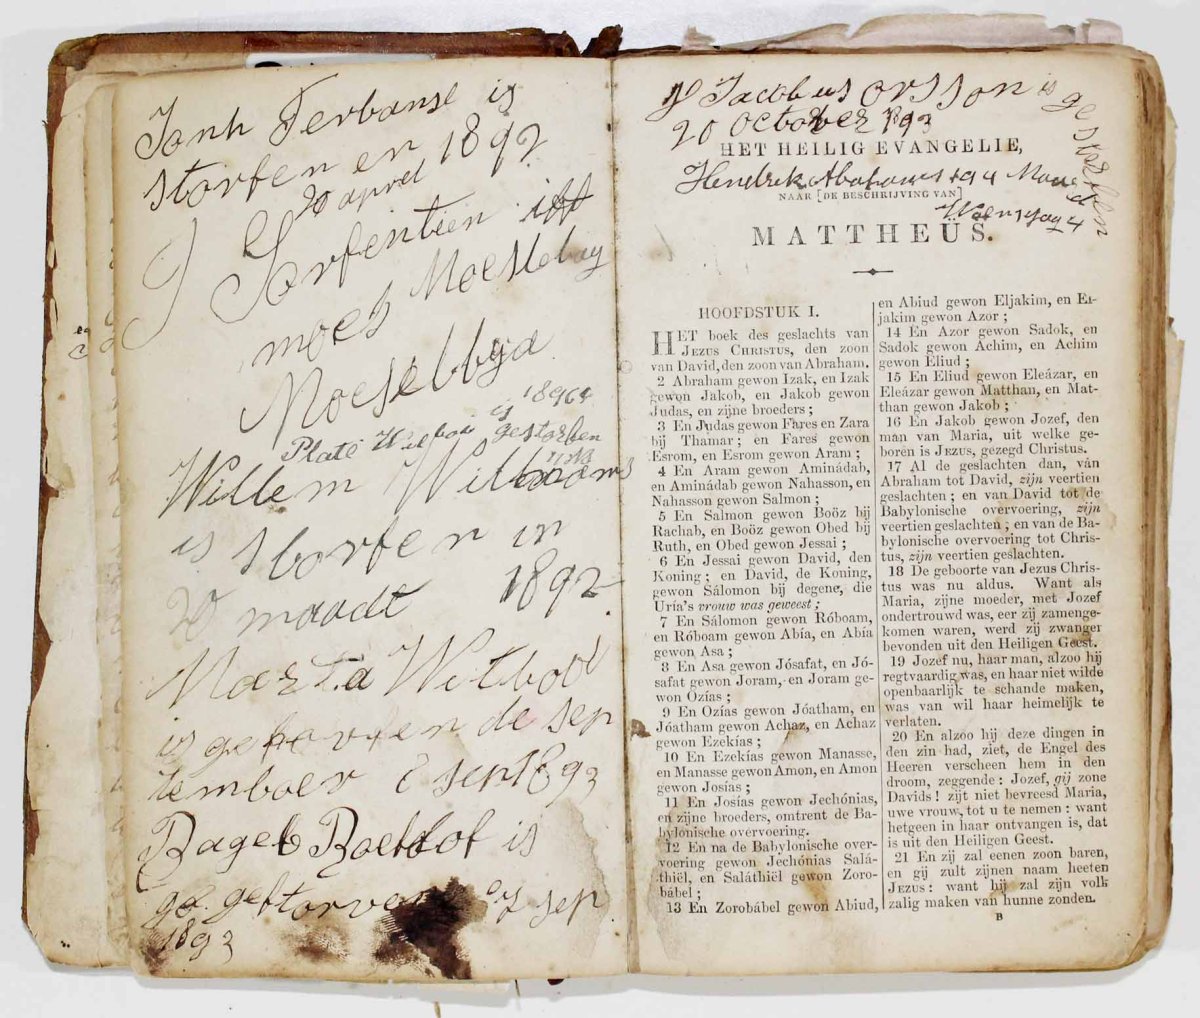 Janh Terbanse is
storfen en 1892
20 aprel
J Sorfentien
moes Moeslebay
Moeselbbyd
Plate Witbooi is gestorben
Willem Witbooi
is storfen in
20 maadt 1892
Marta Witbooi
is gestorfen de sep
temboer 2 sept 1893
Ragel Roelof is
ge gestorven 7 sep
1893
Jacobus orsson is gestorfen
20 october 1893
HET HEILIG EVANGELIE,
Hendrik Abahams 4 Maned
NAAR [DE BESCHRIJVING VAN]
Woensdag 4
MATTHEÜS.
HOOFDSTUK I.
HET boek des geslachts van
JEZUS CHRISTUS, den zoon
van David, den zoon van Abraham.
2 Abraham gewon Izak, en Izak
gewon Jakob, en Jakob gewon
Judas, en zijne broeders ;
3 En Judas gewon Fares en Zara
bij Thamar ; en Fares gewon
Esrom, en Esrom gewon Aram ;
4 En Aram gewon Aminádab,
en Aminádab gewon Nahasson, en
Nahasson gewon Salmon ;
5 En Salmon gewon Boöz bij
Rachab, en Boöz gewon Obed bij
Ruth, en Obed gewon Jessai ;
6 En Jessai gewon David, den
Koning ; en David, de Koning,
gewon Sálomon bij degene, die
Uría's vrouw was geweest ;
7 En Sálomon gewon Róboam,
en Róboam gewon Abía, en Abía
gewon Asa ;
8 En Asa gewon Jósafat, en Jó-
safat gewon Joram, en Joram ge-
won Ozías ;
9 En Ozías gewon Jóatham, en
Jóatham gewon Achaz, en Achaz
gewon Ezekías ;
10 En Ezekías gewon Manasse,
en Manasse gewon Amon, en Amon
gewon Josías ;
11 En Josías gewon Jechónias,
en zijne broeders, omtrent de Ba-
bylonische overvoering.
12 En na de Babylonische over-
voering gewon Jechónias Salá-
thiël, en Saláthiël gewon Zoro-
bábel ;
13 En Zorobábel gewon Abiud,
en Abiud gewon Eljakim, en El-
jakim gewon Azor ;
14 En Azor gewon Sadok, en
Sadok gewon Achim, en Achim
gewon Eliud ;
15 En Eliud gewon Eleázar, en
Eleázar gewon Matthan, en Mat-
than gewon Jakob ;
16 En Jakob gewon Jozef, den
man van Maria, uit welke ge-
boren is JEZUS, gezegd Christus.
17 Al de geslachten dan, van
Abraham tot David, zijn veertien
geslachten ; en van David tot de
Babylonische overvoering, zijn
veertien geslachten ; en van de Ba-
bylonische overvoering tot Chris-
tus, zijn veertien geslachten.
18 De geboorte van Jezus Chris-
tus was nu aldus. Want als
Maria, zijne moeder, met Jozef
ondertrouwd was, eer zij zamenge-
komen waren, werd zij zwanger
bevonden uit den Heiligen Geest.
19 Jozef nu, haar man, alzoo hij
regtvaardig was, en haar niet wilde
openbaarlijk te schande maken,
was van wil haar heimelijk te
verlaten.
20 En alzoo hij deze dingen in
den zin had, ziet, de Engel des
Heeren verscheen hem in den
droom, zeggende : Jozef, gij zone
Davids ! zijt niet bevreesd Maria,
uwe vrouw, tot u te nemen : want
hetgeen in haar ontvangen is, dat
is uit den Heiligen Geest.
21 En zij zal eenen zoon baren,
en gij zult zijnen naam heeten
JEZUS : want hij zal zijn volk
zalig maken van hunne zonden.
B